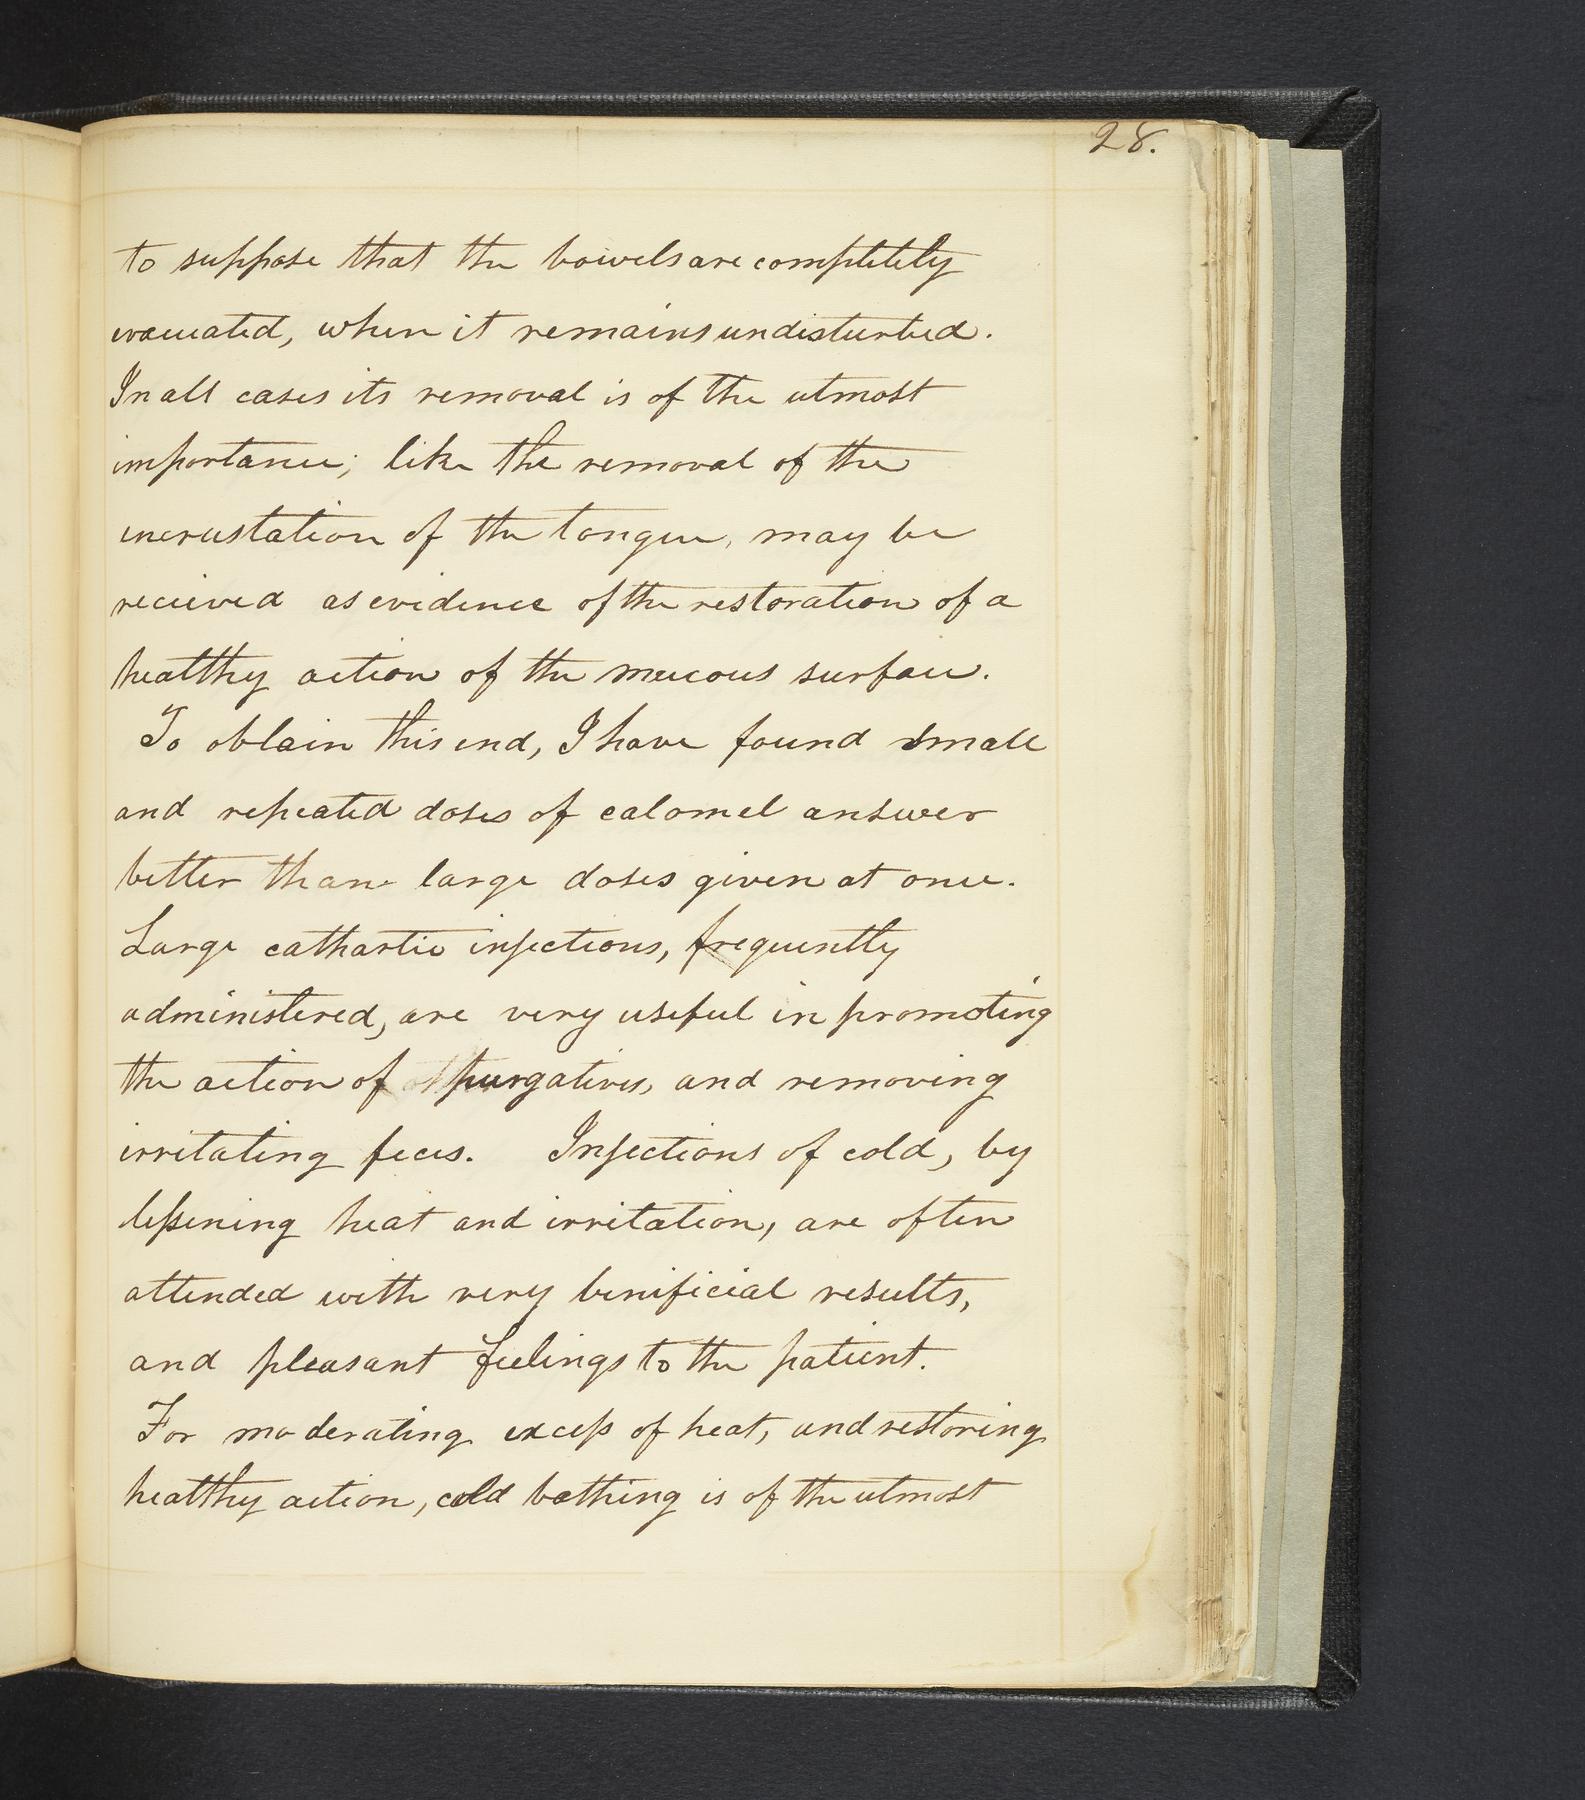 28.
to suppose that the bowels are completely
evacuated, when it remains undisturbed.
In all cases its removal is of the utmost
importance; like the removal of the
incrustation of the tongue, may be
recieved as evidence of the restoration of a
healthy action of the mucous surface.
To obtain this end, I have found small
and repeated doses of calomel answer
better than large doses given at once.
Large cathartic injections, frequently
administered, are very useful in promoting
the action of purgatives, and removing
irritating feces. Injections of cold, by
lessening heat and irritation, are often
attended with very benificial results,
and pleasant feelings to the patient.
For moderating excess of heat, and restoring
healthy action, cold bathing is of the utmost